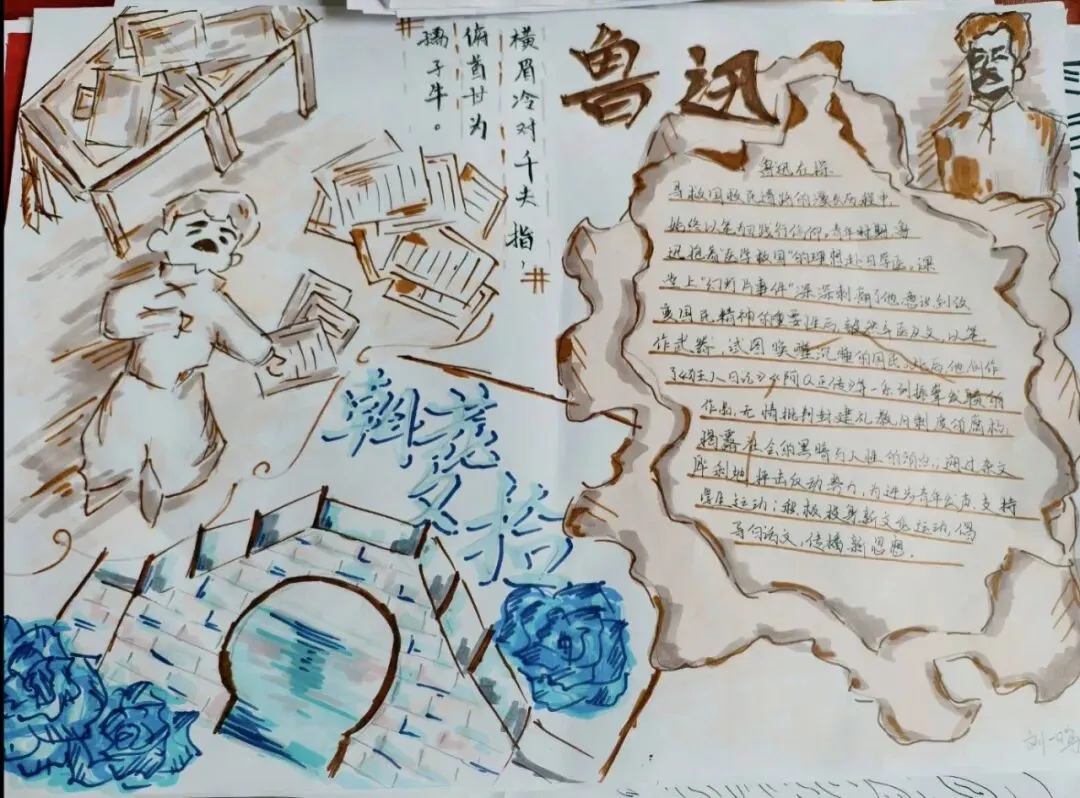 横眉冷对千夫指，
俯首甘为
孺子牛。
鲁迅
朝花夕拾
鲁迅在探
寻救国救民道路的漫长历程中
始终以笔为刃践行信仰。青年时期，鲁
迅抱着"医学救国"的理想赴日学医，课
堂上"幻灯片事件"深深刺痛了他，意识到改
变国民精神的重要性后，毅然弃医从文，以笔
作武器，试图唤醒沉睡的国民。此后他创作
了《狂人日记》《阿Q正传》等一系列振聋发聩的
作品，无情批判封建礼教及制度的腐朽，
揭露社会的黑暗与人性的弱点，通过杂文
犀利抨击反动势力，为进步青年发声，支持
学生运动；积极投身新文化运动，倡
导白话文，传播新思想。
刘一